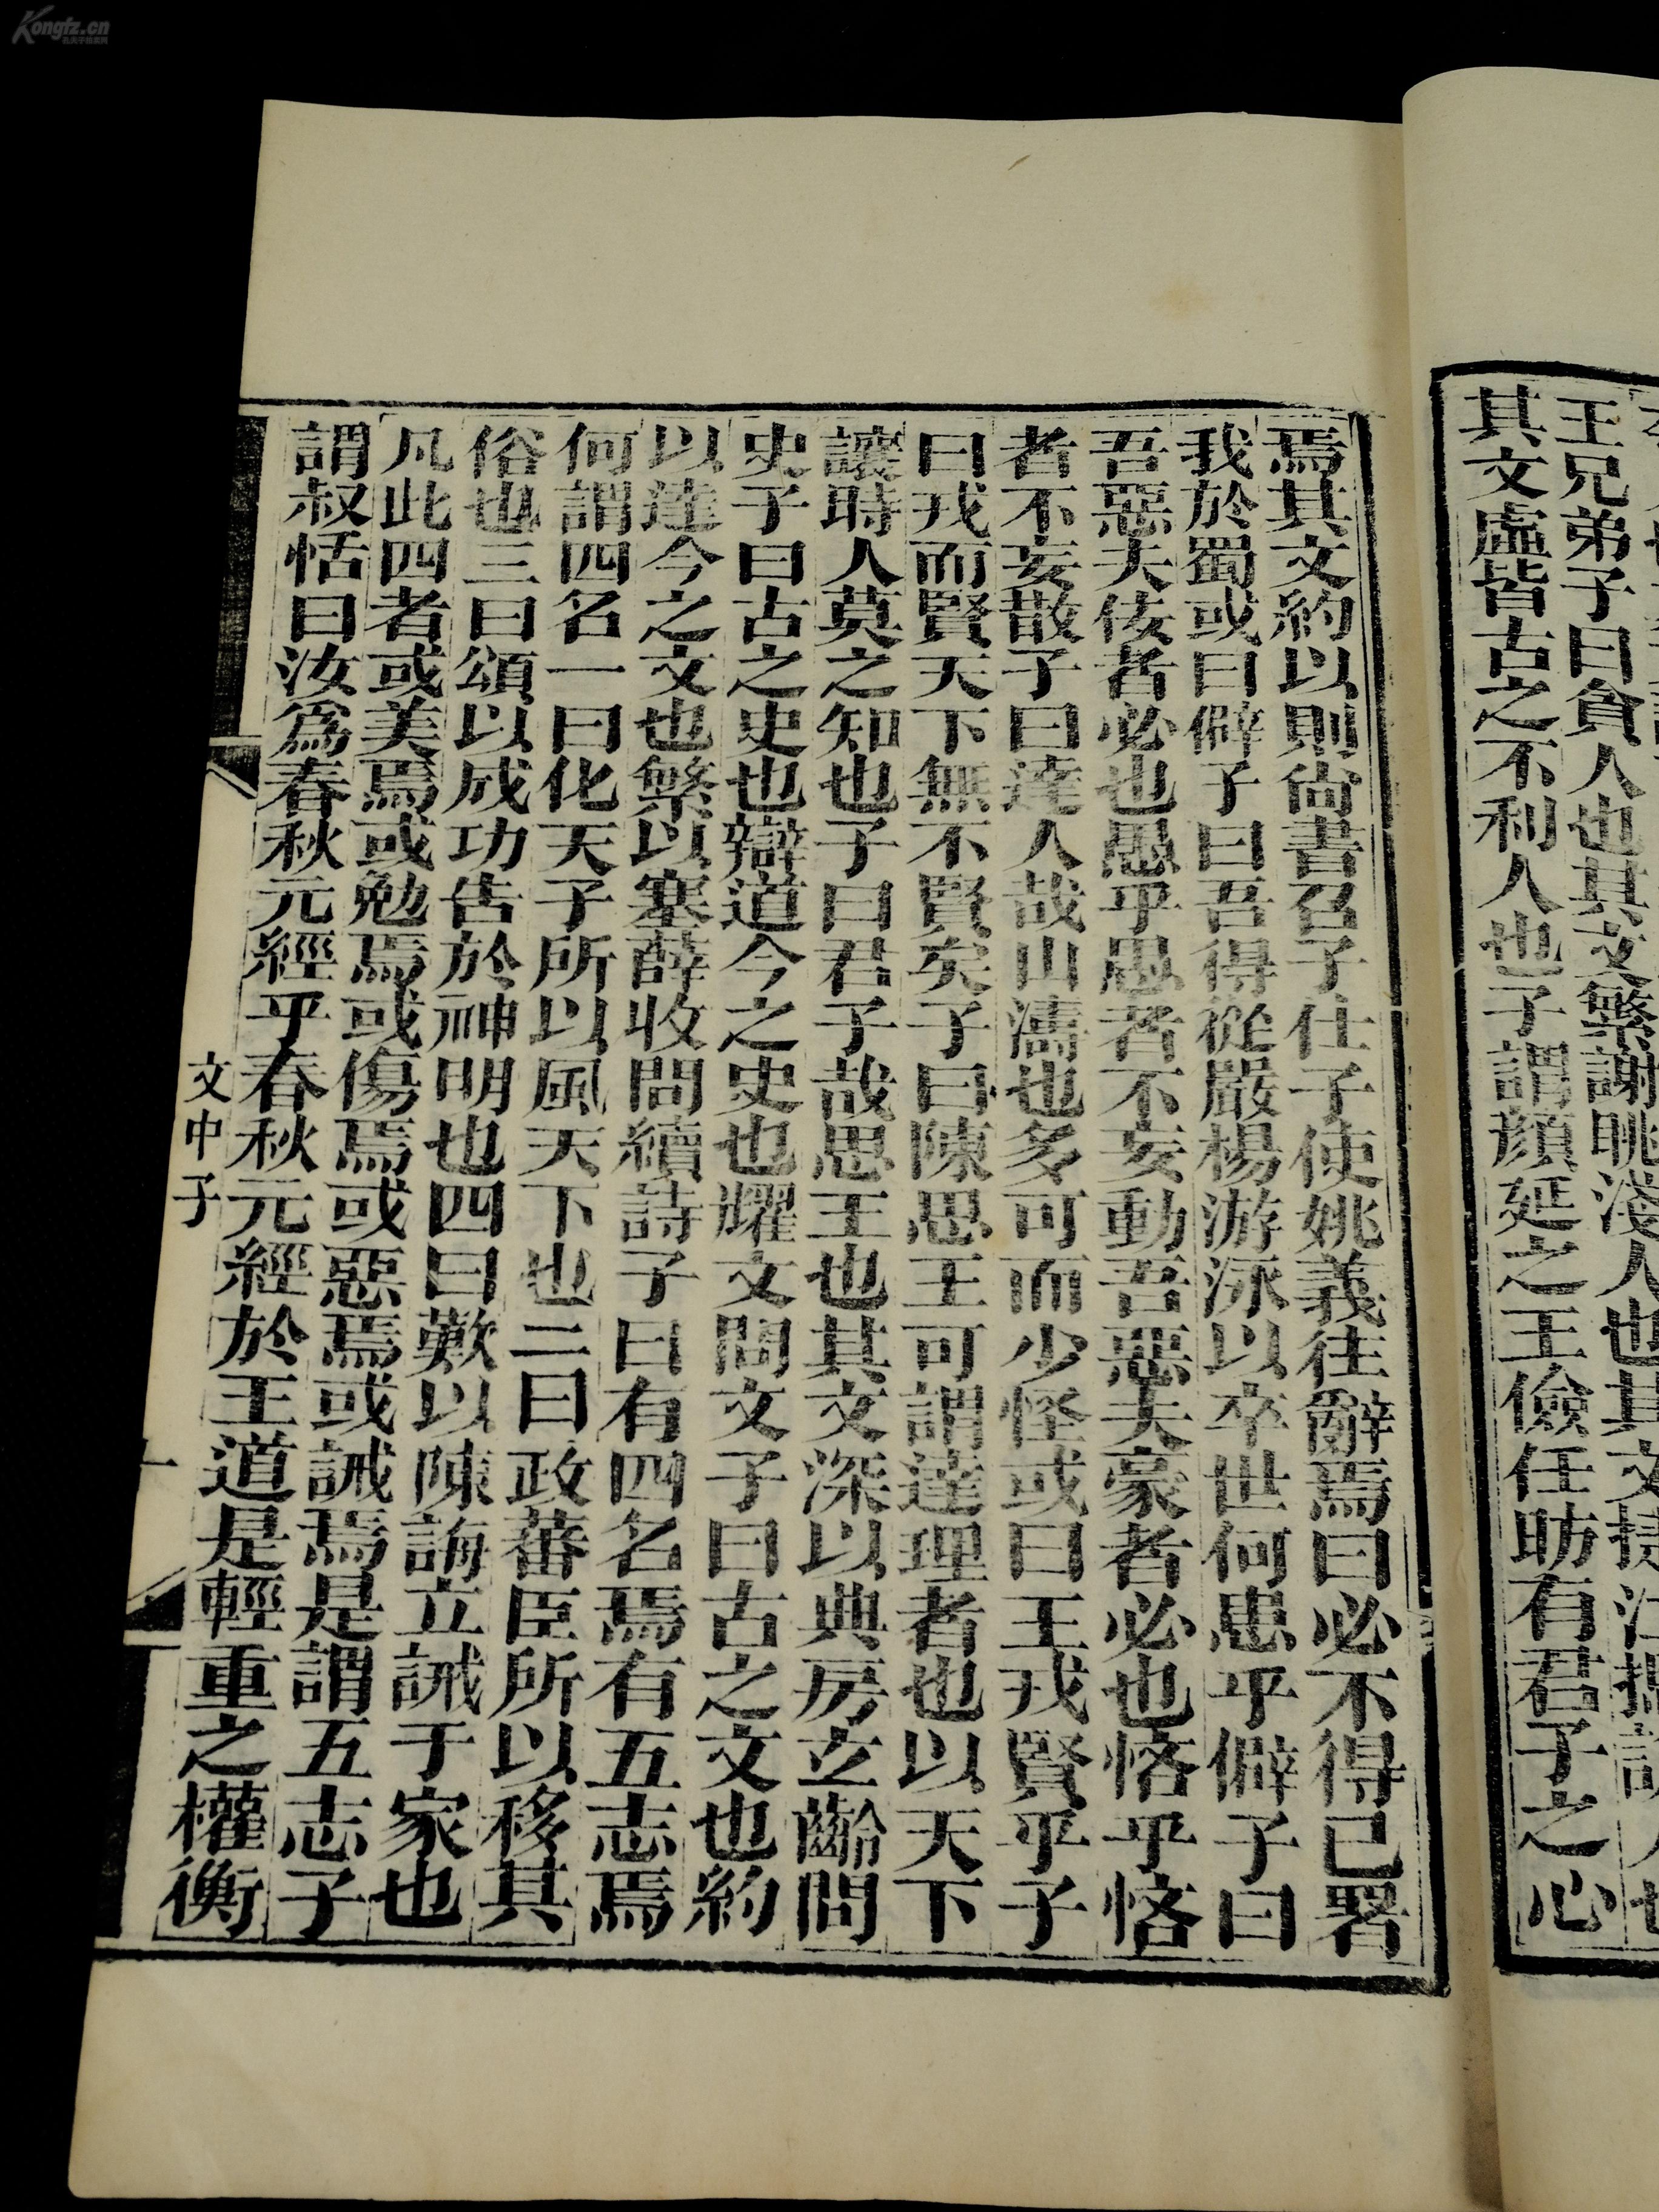 王兄弟子曰貪人也其文繁謝眺淺人也其文捷江摠詭人也
其文虛皆古之不利人也子謂顔延之王儉任昉有君子之心
焉其文約以則尙書召子仕子使姚義往辭焉曰必不得已署
我於蜀或曰僻子曰吾得從嚴楊游泳以卒世何患乎僻子曰
吾惡夫佞者必也愚乎愚者不妄動吾惡夫豪者必也恡乎恡
者不妄散子曰達人哉山濤也多可而少怪或曰王戎賢乎子
曰戎而賢天下無不賢矣子曰陳思王可謂達理者也以天下
讓時人莫之知也子曰君子哉思王也其文深以典房立齡問
史子曰古之史也辯道今之史也耀文問文子曰古之文也約
以達今之文也繁以塞薛收問續詩子曰有四名焉有五志焉
何謂四名一曰化天子所以風天下也二曰政蕃臣所以移其
俗也三曰頌以成功告於神明也四曰歎以陳誨立誡于家也
凡此四者或美焉或勉焉或傷焉或惡焉或誡焉是謂五志子
謂叔恬曰汝爲春秋元經乎春秋元經於王道是輕重之權衡
文中子
十一
Kongfz.cn
孔夫子旧书网